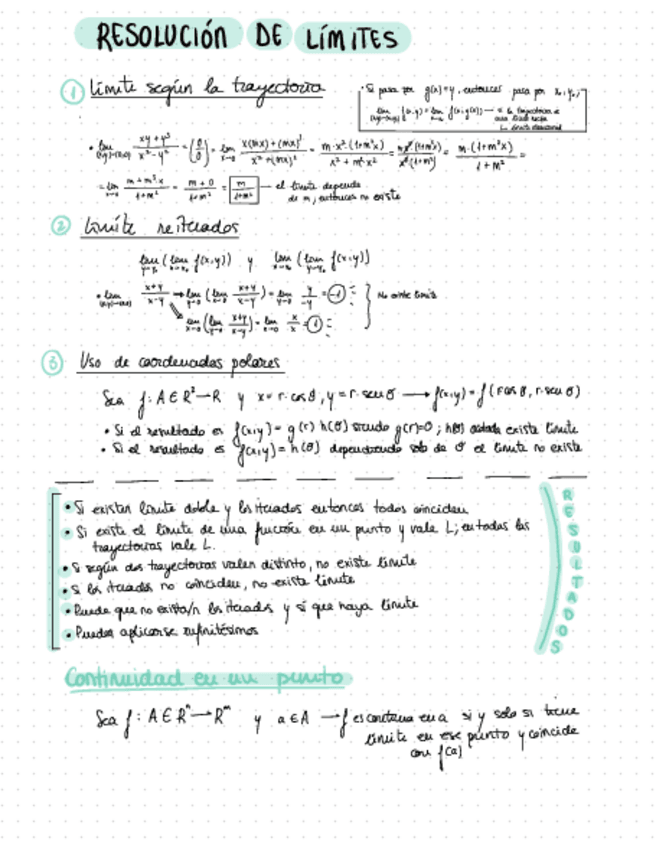 RESOLUCIÓN DE LÍMITES
① Límite según la trayectoria
· Si pasa por g(x)=y, entonces pasa por x₀, y₀;
lim (x,y)→(x₀,y₀) f(x,y) = lim x→x₀ f(x, g(x))
• lim (x,y)→(0,0) xy+y³/x²-y² = (0/0) = lim x→0 x(mx)+(mx)³/x²+(mx)² = m·x²·(1+m²x)/x²+m²x² = mx²(1+m²x)/x²(1+m²) = m·(1+m²x)/1+m² =
= lim x→0 m+m³x/1+m² = m+0/1+m² = m/1+m² → el límite depende
de m, entonces no existe
② Límite reiterados
lim y→y₀ (lim x→x₀ f(x,y)) y lim x→x₀ (lim y→y₀ f(x,y))
• lim (x,y)→(0,0) x+y/x-y → lim y→0 (lim x→0 x+y/x-y) = lim y→0 y/-y = -1
lim x→0 (lim y→0 x+y/x-y) = lim x→0 x/x = 1 } No existe límite
③ Uso de coordenadas polares
Sea f: A∈R²→R y x=r·cosθ, y=r·senθ → f(x,y)=f(r cosθ, r·senθ)
• Si el resultado es f(x,y)= g(r) h(θ) siendo g(r)=0; h(θ) acotada existe límite
• Si el resultado es f(x,y)= h(θ) dependiendo solo de θ el límite no existe
• Si existen límite doble y los iterados entonces todos coinciden
• Si existe el límite de una función en un punto y vale L; en todas las
trayectorias vale L.
• Si según dos trayectorias valen distinto, no existe límite
• Si los iterados no coinciden, no existe límite
• Puede que no exista/n los iterados y sí que haya límite
• Pueden aplicarse infinitésimos
RESULTADOS
Continuidad en un punto
Sea f: A∈Rⁿ→Rᵐ y a∈A → f es continua en a si y solo si tiene
límite en ese punto y coincide
con f(a)